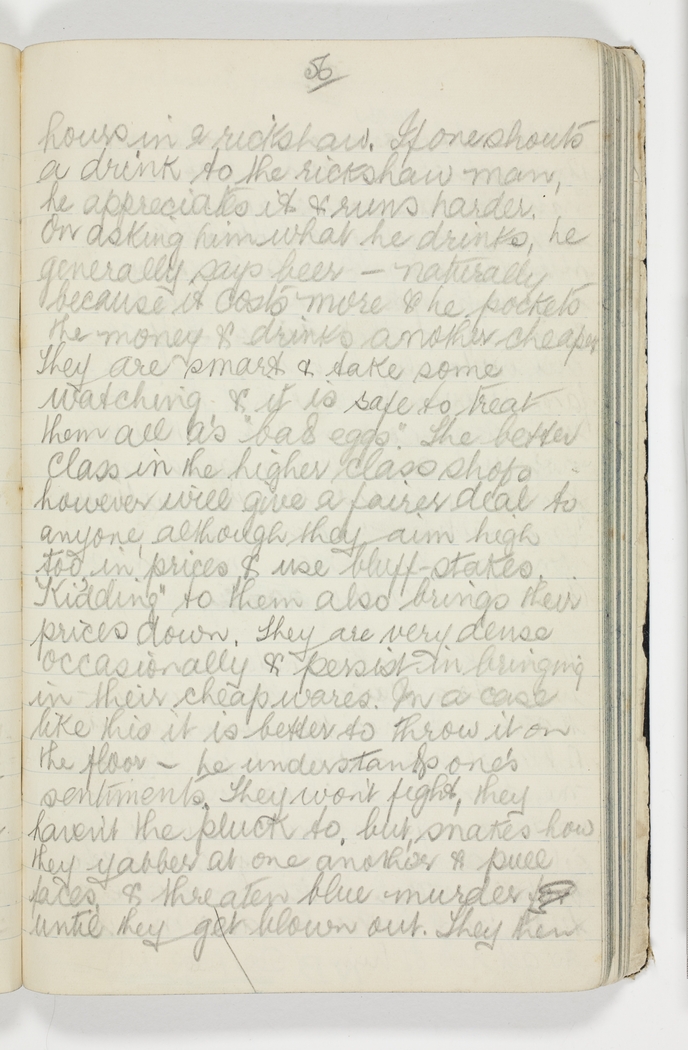 56
hours in a rickshaw. If one shouts
a drink to the rickshaw man,
he appreciates it & runs harder.
On asking him what he drinks, he
generally says beer — naturally
because it costs more & he pockets
the money & drinks another cheaper
They are smart & take some
watching & it is safe to treat
them all as "bad eggs". The better
class in the higher class shops
however will give a fairer deal to
anyone, although they aim high
too in prices & use bluff-stakes.
"Kidding" to them also brings their
prices down. They are very dense
occasionally & persist in bringing
in their cheap wares. In a case
like this it is better to throw it on
the floor — he understands one's
sentiments. They won't fight, they
haven't the pluck to, but, snakes how
they yabber at one another & pull
faces, & threaten blue murder
until they get blown out. They then